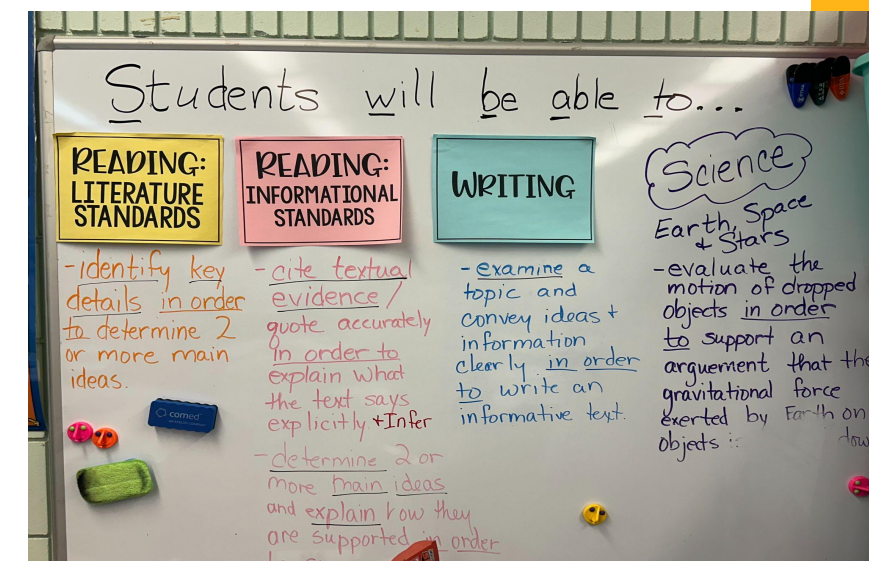 Students will be able to...
READING:
LITERATURE
STANDARDS
-identify key
details in order
to determine 2
or more main
ideas.
comed
READING:
INFORMATIONAL
STANDARDS
- cite textual
evidence /
quote accurately
in order to
explain what
the text says
explicitly + Infer
-determine 2 or
more main ideas
and explain how they
are supported in order
WRITING
- examine a
topic and
convey ideas +
information
clearly in order
to write an
informative text.
Science
Earth, Space
+ Stars
-evaluate the
motion of dropped
objects in order
to support an
arguement that the
gravitational force
exerted by Earth on
objects